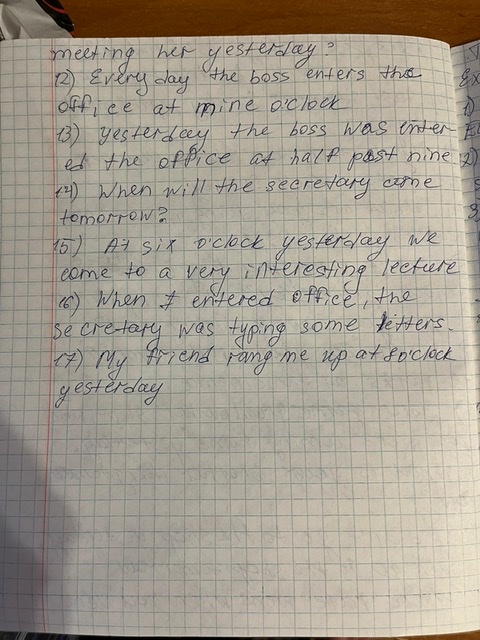 meeting her yesterday?
12) Every day the boss enters the
office at mine o'clock
13) yesterday the boss was enter-
ed the office at half past nine
14) When will the secretary come
tomorrow?
15) At six o'clock yesterday we
come to a very interesting lecture
16) When I entered office, the
secretary was typing some letters.
17) My friend rang me up at 8 o'clock
yesterday